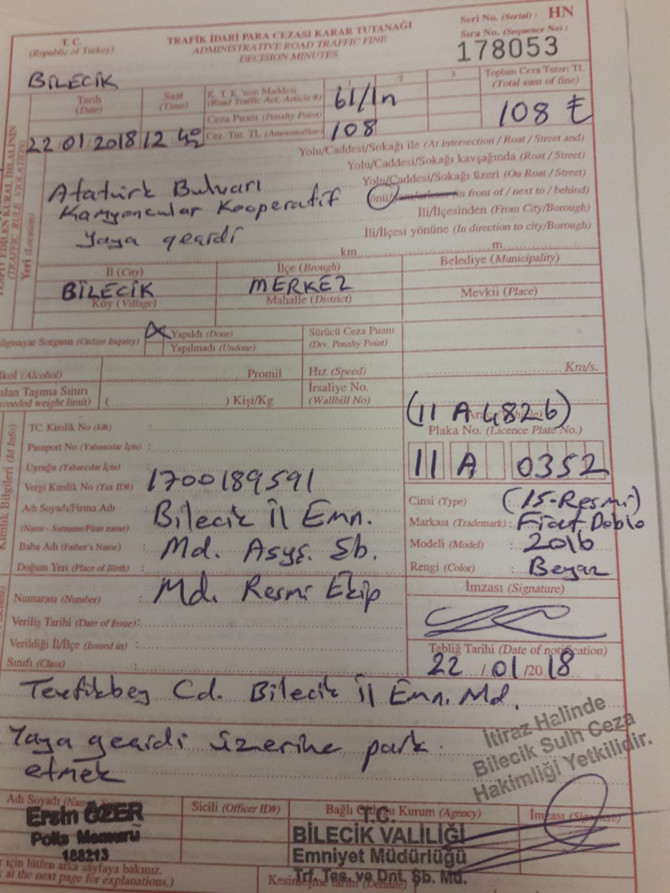 T. C.
(Republic of Turkey)
TRAFİK İDARİ PARA CEZASI KARAR TUTANAĞI
ADMINISTRATIVE ROAD TRAFFIC FINE
DECISION MINUTES
Seri No. (Serial) : HN
Sıra No. (Sequence No) :
178053
BİLECİK
Tarih
(Date)
Saat
(Time)
K. T. K.'nın Maddesi
(Road Traffic Act, Article #)
61/1n
2
3
Toplam Ceza Tutarı TL
(Total sum of fine)
Ceza Puanı (Penalty Point)
108 ₺
22 01 2018 12 40
Cez. Tut. TL
108
Yolu/Caddesi/Sokağı ile (At intersection / Roat / Street and)
Yolu/Caddesi/Sokağı kavşağında (Roat / Street)
Yolu/Caddesi/Sokağı üzeri (On Roat / Street)
Atatürk Bulvarı
Kamyoncular Kooperatif
Önü in front of / next to / behind)
İli/İlçesinden (From City/Borough)
Yaya geçidi
İli/İlçesi yönüne (In direction to city/Borough)
km
m
Yeri (Location)
İl (City)
İlçe (Brough)
Belediye (Municipality)
BİLECİK
MERKEZ
Köy (Village)
Mahalle (District)
Mevkii (Place)
Bilgisayar Sorgusu (Online Inquiry)
X
Yapıldı (Done)
Yapılmadı (Undone)
Sürücü Ceza Puanı
(Drv. Penalty Point)
Alkol (Alcohol)
Promil
Hız (Speed)
Km/s.
Taşıma Sınırı
(Exceeded weight limit)
( ) Kişi/Kg
İrsaliye No.
(Wallbill No)
(11 A 4826)
Plaka No. (Licence Plate No.)
11 A 0352
Kimlik Bilgileri (Id Info)
TC Kimlik No (Id#) :
Pasaport No (Yabancılar İçin) :
Uyruğu (Yabancılar İçin) :
Vergi Kimlik No (Tax ID#) : 1700189591
Adı Soyadı/Firma Adı : Bilecik İl Emn.
(Name - Surname/Firm name)
Baba Adı (Father's Name) : Md. Asyş. Şb.
Doğum Yeri (Place of Birth) :
Cinsi (Type) : (15-Resmi)
Markası (Trademark) : Fiat Doblo
Modeli (Model) : 2016
Rengi (Color) : Beyaz
Numarası (Number) : Md. Resmi Ekip
Veriliş Tarihi (Date of Issue) :
Verildiği İl/İlçe (Issued in) :
Sınıfı (Class) :
İmzası (Signature)
Tebliğ Tarihi (Date of notification)
22 / 01 / 2018
Tevfikbey Cd. Bilecik İl Emn. Md.
Yaya geçidi üzerine park
etmek
İtiraz Halinde
Bilecik Sulh Ceza
Hakimliği Yetkilidir.
Adı Soyadı
Sicili (Officer ID#)
Bağlı Olduğu Kurum (Agency)
İmzası
Ersin ÖZER
Polis Memuru
188213
T.C.
BİLECİK VALİLİĞİ
Emniyet Müdürlüğü
Trf. Tes. ve Dnt. Şb. Md.
için lütfen arka sayfaya bakınız.
at the next page for explanations.)